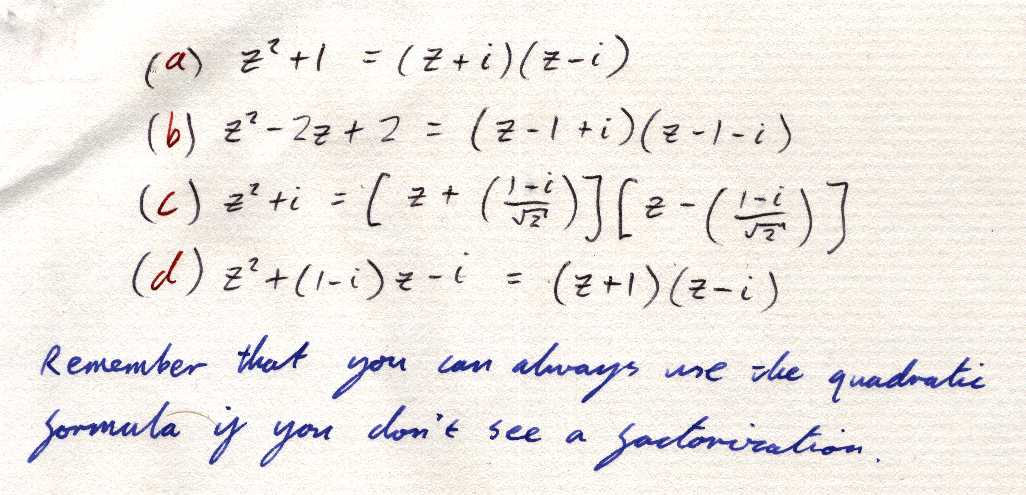 (a) z² + 1 = (z + i)(z - i)
(b) z² - 2z + 2 = (z - 1 + i)(z - 1 - i)
(c) z² + i = [z + ((1-i)/√2)][z - ((1-i)/√2)]
(d) z² + (1-i)z - i = (z + 1)(z - i)
Remember that you can always use the quadratic
formula if you don't see a factorization.